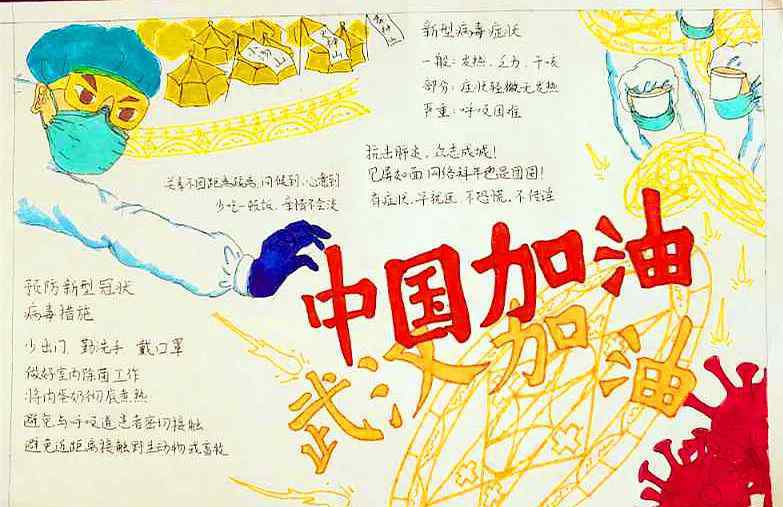 新型病毒症状
一般：发热、乏力、干咳
部分：症状轻微无发热
严重：呼吸困难
抗击肺炎，众志成城！
见屏如面网络拜年也是团圆！
有症状，早就医，不恐慌，不传谣
关系不因距离疏离，问候到，心意到
少吃一顿饭，亲情不会淡
中国加油
武汉加油
预防新型冠状
病毒措施
少出门 勤洗手 戴口罩
做好室内除菌工作
将肉蛋奶彻底煮热
避免与呼吸道患者密切接触
避免近距离接触野生动物或畜牧